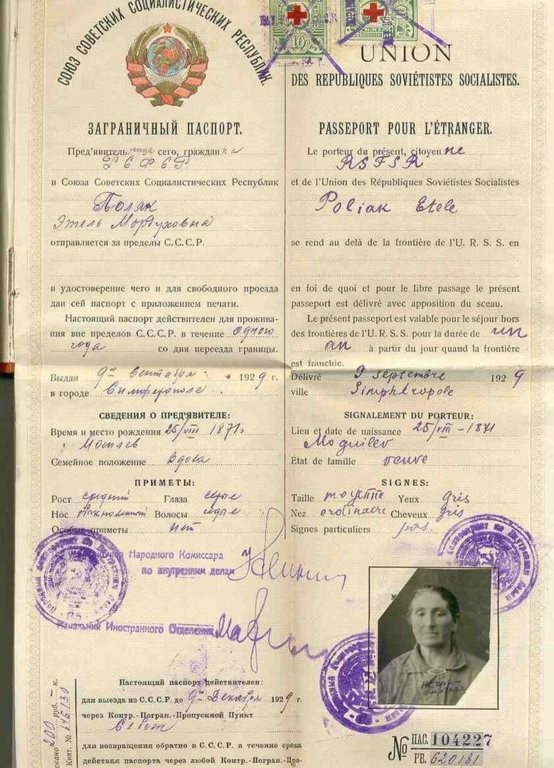 СОЮЗ СОВЕТСКИХ СОЦИАЛИСТИЧЕСКИХ РЕСПУБЛИК.
ЗАГРАНИЧНЫЙ ПАСПОРТ.
Пред'явитель сего, граждан ка
РСФСР
и Союза Советских Социалистических Республик
Поляк
Этель Мордуховна
отправляется за пределы С.С.С.Р.
в удостоверение чего и для свободного проезда
дан сей паспорт с приложением печати.
Настоящий паспорт действителен для прожива-
ния вне пределов С.С.С.Р. в течение одного
года со дня переезда границы.
Выдан 9го Сентября 1929 г.
в городе Симферополе
СВЕДЕНИЯ О ПРЕД'ЯВИТЕЛЕ:
Время и место рождения 25/VIII 1871 г.
г. Могилев
Семейное положение Вдова
ПРИМЕТЫ:
Рост средний Глаза серые
Нос Волосы серые
Особые приметы нет
Народного Комиссара
по внутренним делам
Начальник Иностранного Отделения
Настоящий паспорт действителен:
для выезда из С.С.С.Р. до 9го Декабря 1929 г.
через Контр.-Погран.-Пропускной Пункт
для возвращения обратно в С.С.С.Р. в течение срока
действия паспорта через любой Контр.-Погран.-Про-
UNION
DES REPUBLIQUES SOVIÉTISTES SOCIALISTES.
PASSEPORT POUR L'ÉTRANGER.
Le porteur du présent, citoyen ne
RSFSR
et de l'Union des Républiques Soviétistes Socialistes
Poliak Etele
se rend au delà de la frontière de l'U. R. S. S. en
en foi de quoi et pour le libre passage le présent
passeport est délivré avec apposition du sceau.
Le présent passeport est valable pour le séjour hors
des frontières de l'U. R. S. S. pour la durée de un
an à partir du jour quand la frontière
est franchie.
Délivré 9 septembre 1929
ville Simphéropole
SIGNALEMENT DU PORTEUR:
Lieu et date de naissance 25/VIII - 1871
Moguilev
État de famille veuve
SIGNES:
Taille moyenne Yeux gris
Nez ordinaire Cheveux gris
Signes particuliers pas.
№ ПАС. 104227
РЕ. 620181